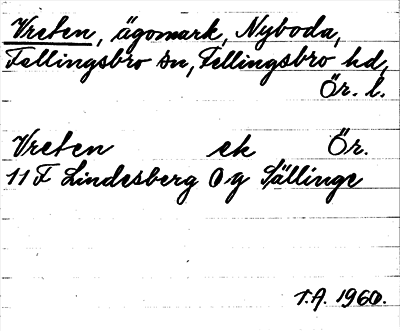 Vreten, ägomark, Nyboda,
Fellingsbro sn, Fellingsbro hd,
Ör. l.
Vreten ek Ör.
11 F Lindesberg Og Sällinge
T.A. 1960.